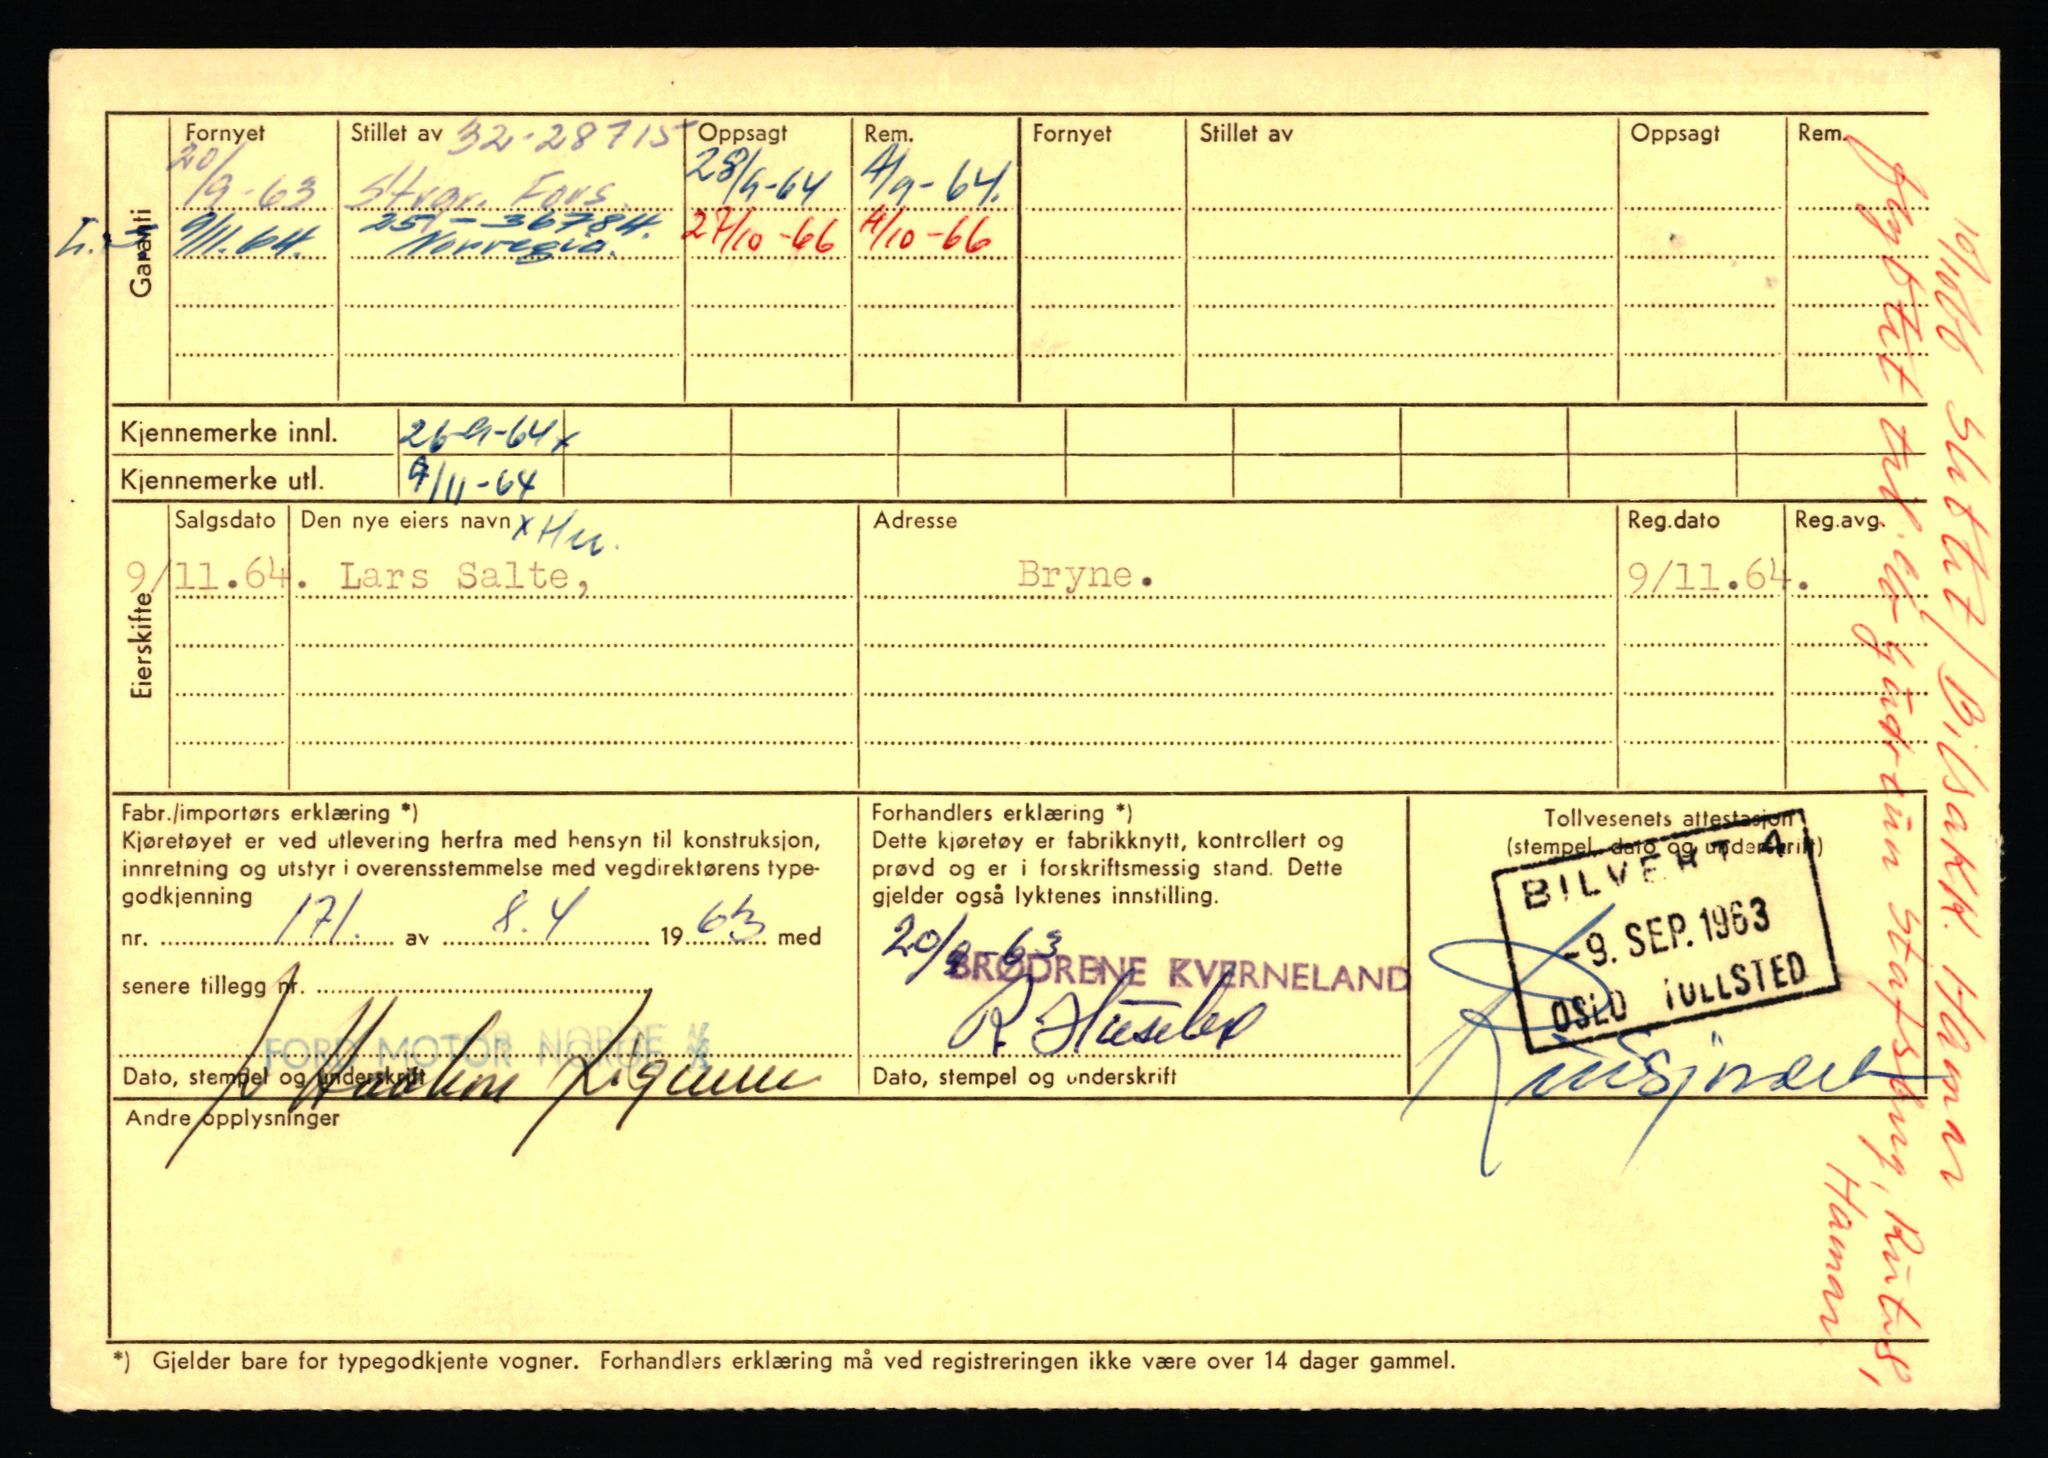 Garanti
Fornyet Stillet av 32-28715 Oppsagt Rem. Fornyet Stillet av Oppsagt Rem.
20/9-63 Strgr. Fors. 28/9-64 4/9-64.
9/11.64. 25-36784. Norvegia. 27/10-66 4/10-66
Kjennemerke innl. 26-9-64 x
Kjennemerke utl. 9/11-64
Eierskifte
Salgsdato Den nye eiers navn x Hu. Adresse Reg.dato Reg.avg.
9/11.64. Lars Salte, Bryne. 9/11.64.
Fabr./importørs erklæring *)
Kjøretøyet er ved utlevering herfra med hensyn til konstruksjon,
innretning og utstyr i overensstemmelse med vegdirektørens type-
godkjenning
nr. 171. av 8.4 1963 med
senere tillegg nr.
FORD MOTOR NORGE A/S
Dato, stempel og underskrift
Forhandlers erklæring *)
Dette kjøretøy er fabrikknytt, kontrollert og
prøvd og er i forskriftsmessig stand. Dette
gjelder også lyktenes innstilling.
20/9 63
BRØDRENE KVERNELAND
Dato, stempel og underskrift
Tollvesenets attestasjon
(stempel, dato og underskrift)
BILVEKT A
-9. SEP. 1963
OSLO TOLLSTED
Andre opplysninger
*) Gjelder bare for typegodkjente vogner. Forhandlers erklæring må ved registreringen ikke være over 14 dager gammel.
10/11 66 Slettet / Bilsakk. Hamar
flyttet til
Hamar